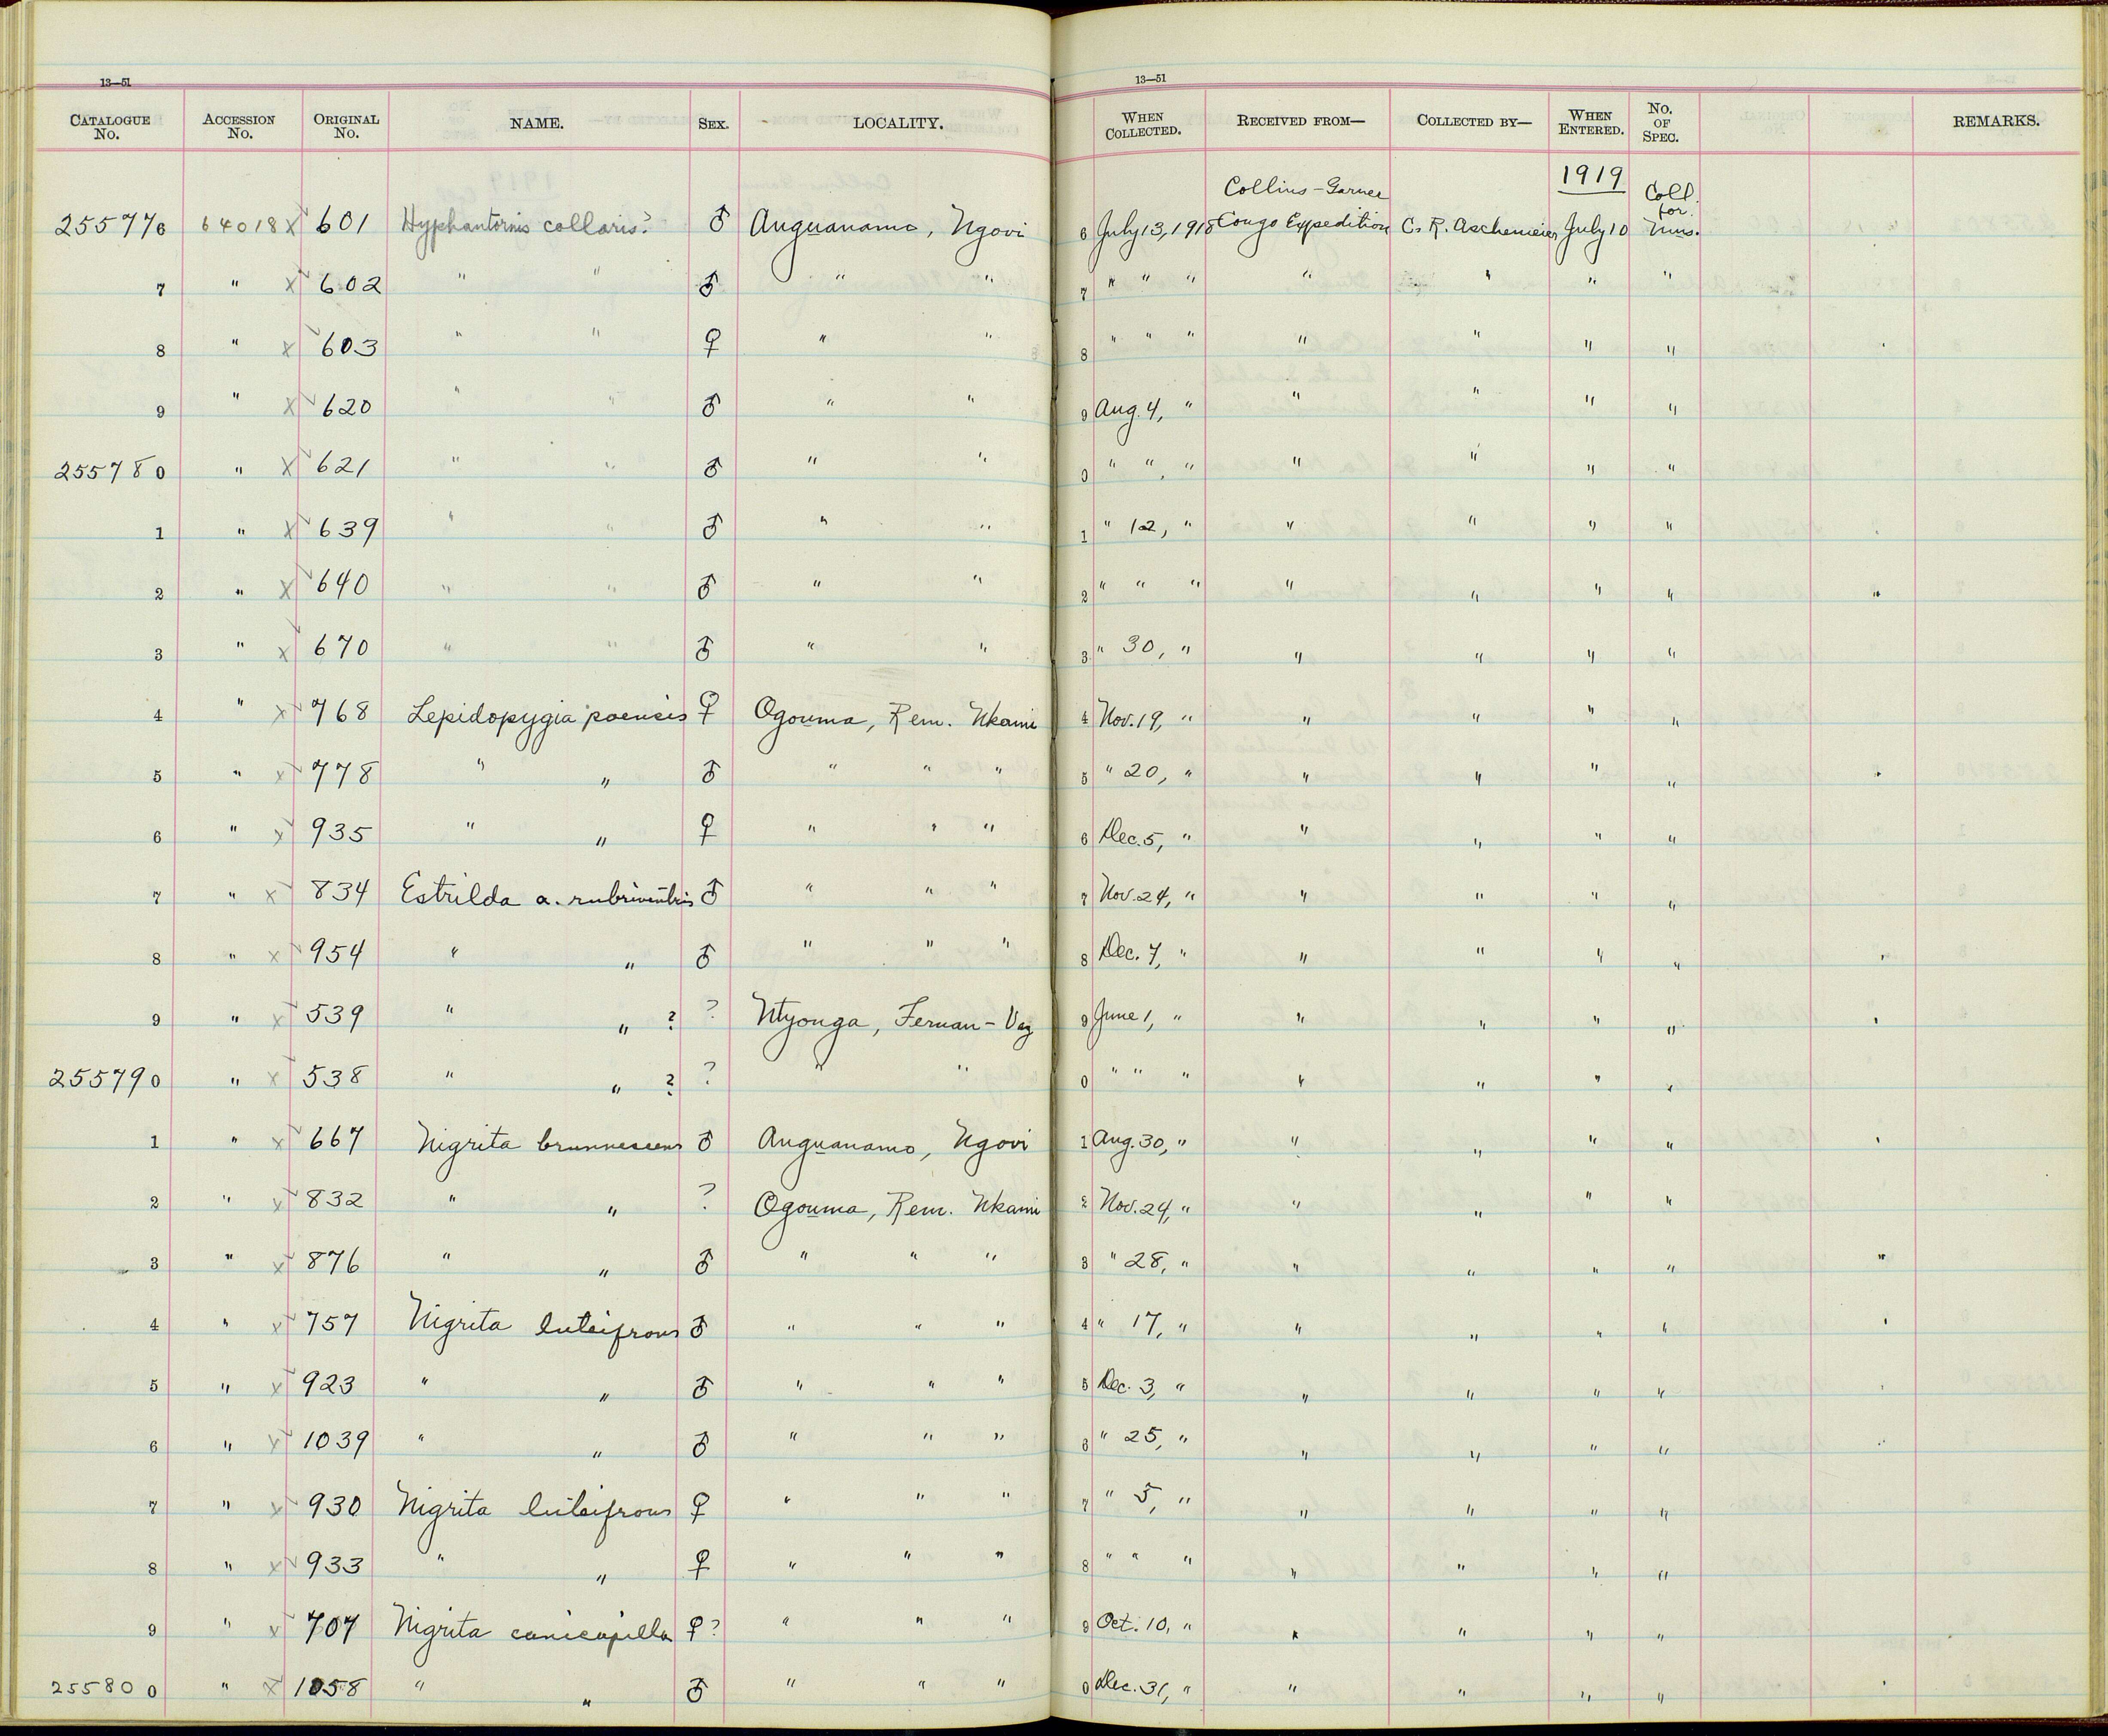 13—51
13—51
CATALOGUE No. ACCESSION No. ORIGINAL No. NAME. SEX. LOCALITY. WHEN COLLECTED. RECEIVED FROM— COLLECTED BY— WHEN ENTERED. No. OF SPEC. REMARKS.
Collins-Garner 1919 Coll. for
255776 64018 X 601 Hyphantornis collaris? ♂ Anguanamo, Ngovi 6 July 13, 1918 Congo Expedition C. R. Aschemeier July 10 Mus.
7 " X 602 " " ♂ " " 7 " " " " " " "
8 " X 603 " " ♀ " " 8 " " " " " " "
9 " X 620 " " ♂ " " 9 Aug. 4, " " " " "
255780 " X 621 " " ♂ " " 0 " ", " " " " "
1 " X 639 " " ♂ " " 1 " 12, " " " " "
2 " X 640 " " ♂ " " 2 " " " " " " "
3 " X 670 " " ♂ " " 3 " 30, " " " " "
4 " X 768 Lepidopygia poensis ♀ Ogouma, Rem. Nkami 4 Nov. 19, " " " " "
5 " X 778 " " ♂ " " " 5 " 20, " " " " "
6 " X 935 " " ♀ " " " 6 Dec. 5, " " " " "
7 " X 834 Estrilda a. rubriventris ♂ " " " 7 Nov. 24, " " " " "
8 " X 954 " " ♂ " " " 8 Dec. 7, " " " " "
9 " X 539 " " ? ? Ntyonga, Fernan-Vaz 9 June 1, " " " " "
255790 " X 538 " " ? ? " " 0 " " " " " " "
1 " X 667 Nigrita brunnescens ♂ Anguanamo, Ngovi 1 Aug. 30, " " " " "
2 " X 832 " " ? Ogouma, Rem. Nkami 2 Nov. 24, " " " " "
3 " X 876 " " ♂ " " " 3 " 28, " " " " "
4 " X 757 Nigrita luteifrons ♂ " " " 4 " 17, " " " " "
5 " X 923 " " ♂ " " " 5 Dec. 3, " " " " "
6 " X 1039 " " ♂ " " " 6 " 25, " " " " "
7 " X 930 Nigrita luteifrons ♀ " " " 7 " 5, " " " " "
8 " X 933 " " ♀ " " " 8 " " " " " " "
9 " X 707 Nigrita canicapilla ♀? " " " 9 Oct. 10, " " " " "
255800 " X 1058 " " ♂ " " " 0 Dec. 31, " " " " "